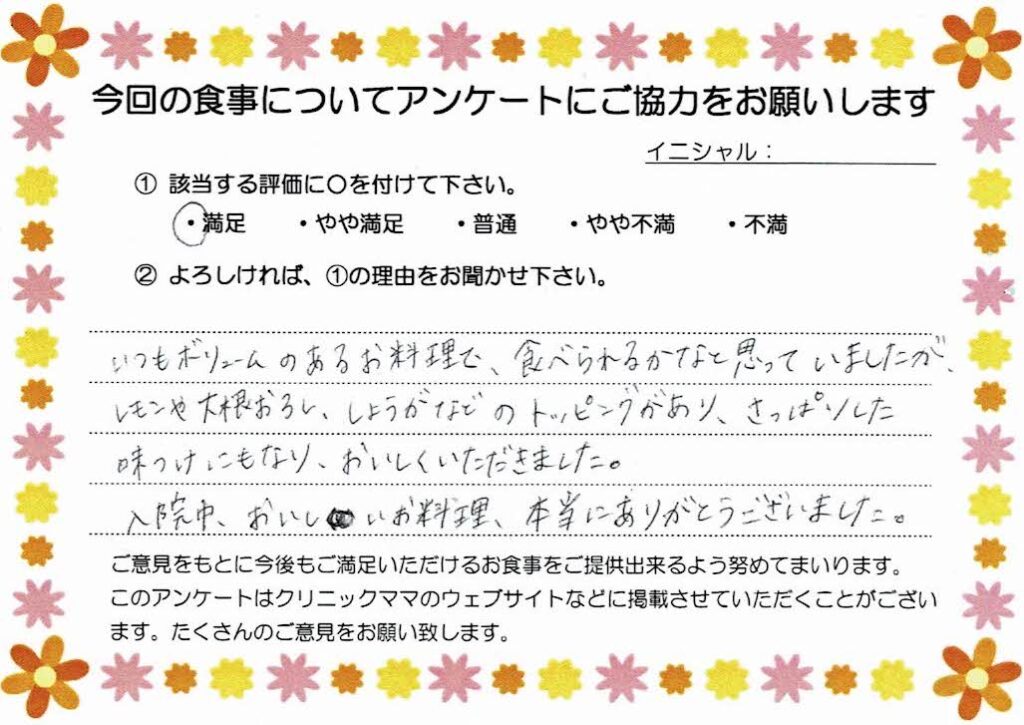 今回の食事についてアンケートにご協力をお願いします
イニシャル：
① 該当する評価に〇を付けて下さい。
・満足 ・やや満足 ・普通 ・やや不満 ・不満
② よろしければ、①の理由をお聞かせ下さい。
いつもボリュームのあるお料理で、食べられるかなと思っていましたが、
レモンや大根おろし、しょうがなどのトッピングがあり、さっぱりした
味つけにもなり、おいしくいただきました。
入院中、おいしいお料理、本当にありがとうございました。
ご意見をもとに今後もご満足いただけるお食事をご提供出来るよう努めてまいります。
このアンケートはクリニックママのウェブサイトなどに掲載させていただくことがござい
ます。たくさんのご意見をお願い致します。